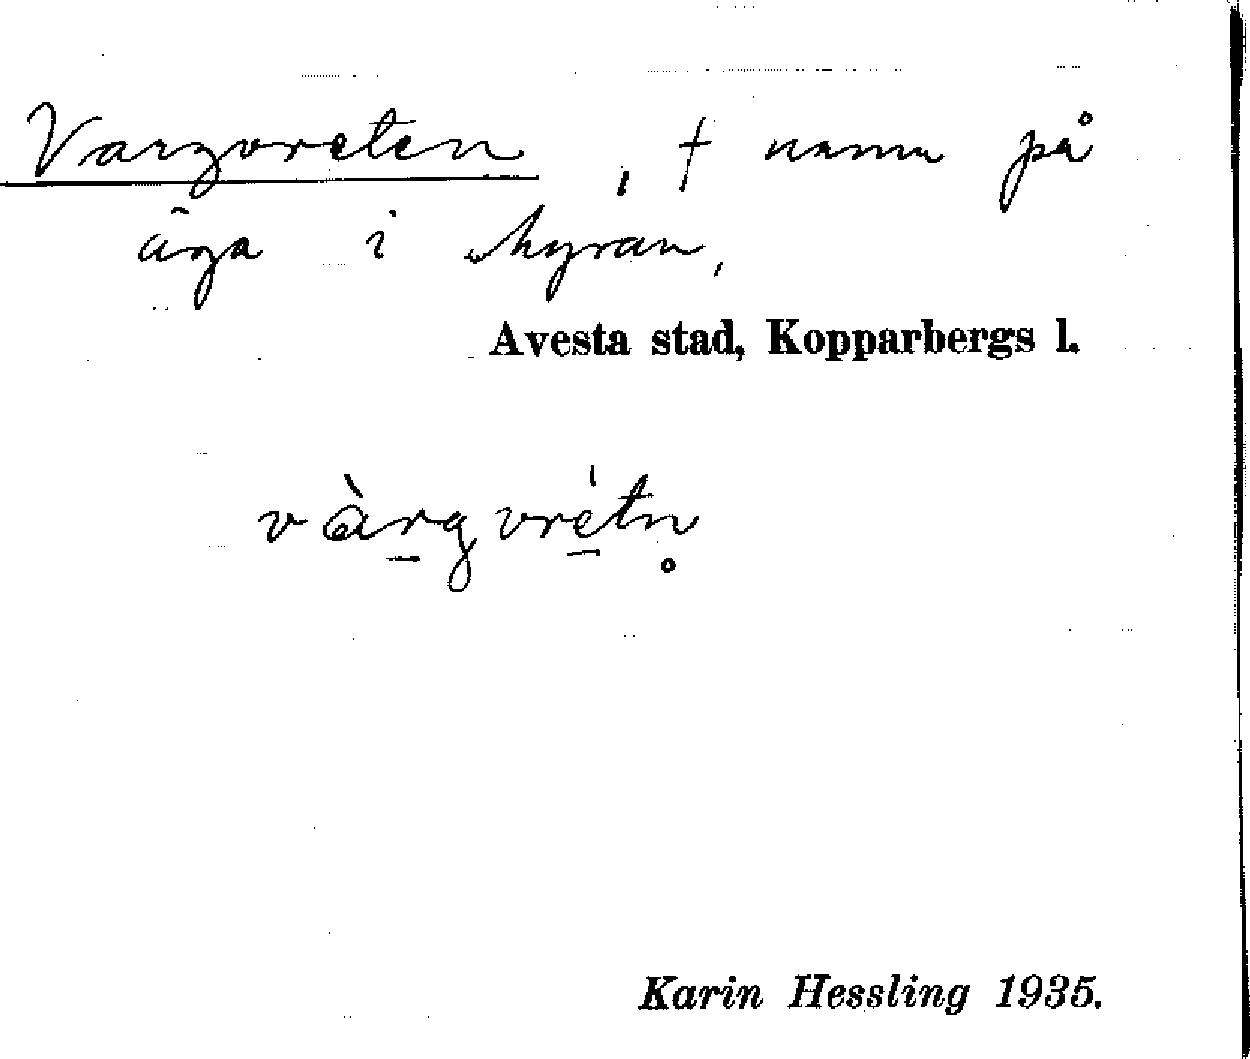 Vargvreten, † namn på
äga i Myran,
Avesta stad, Kopparbergs l.
vàrgvrétn̥
Karin Hessling 1935.